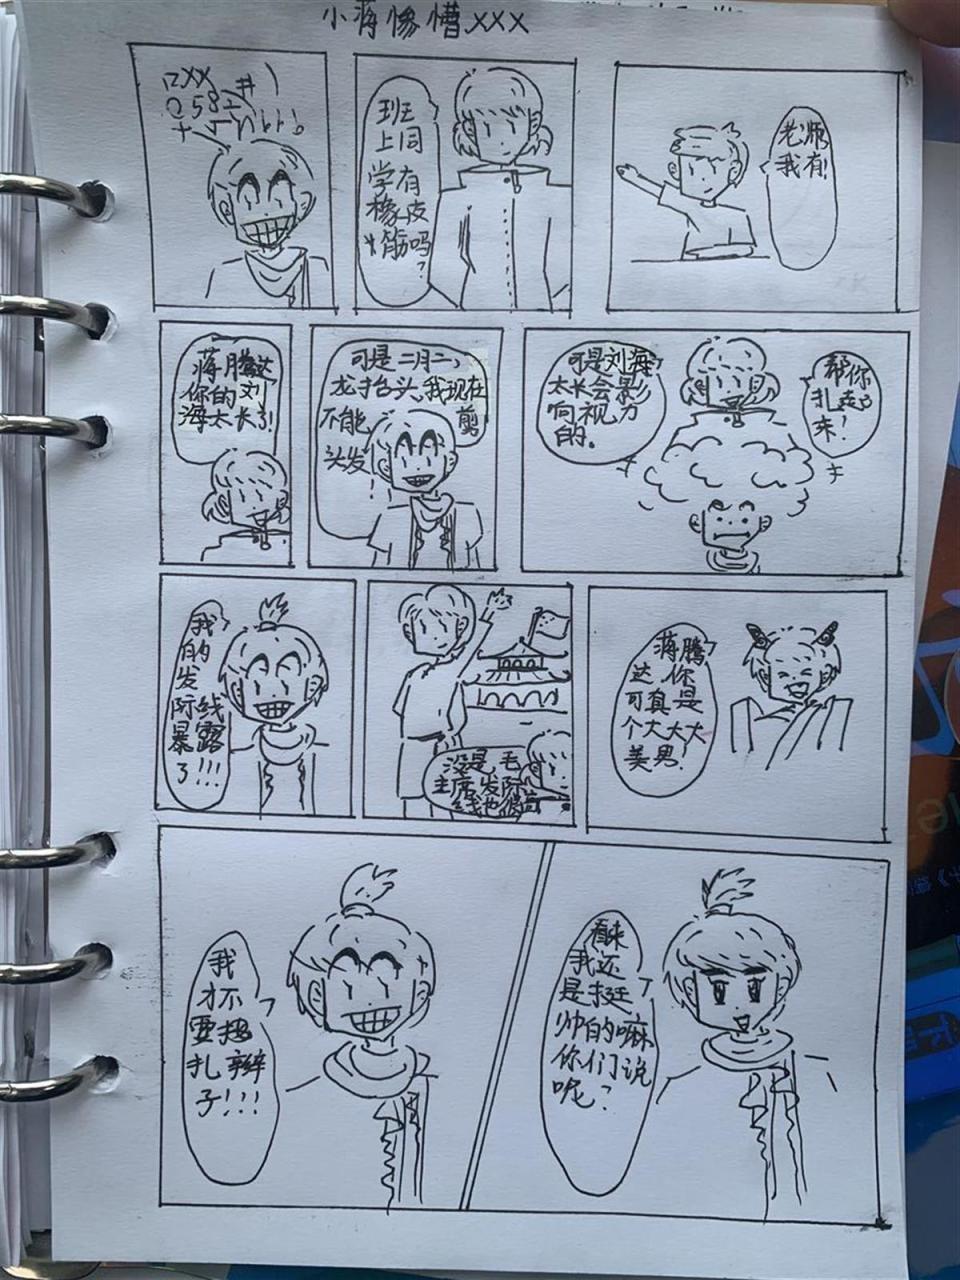 小蒋惨遭XXX
口XX
058
班
上同
学有
橡皮
筋吗?
老师
我有!
蒋腾达
你的刘
海太长了!
可是二月二,
龙抬头,我现在
不能剪
头发
可是刘海
太长会影
响视力
的.
帮你
扎起
来!
我
的
发
际线
暴露
了!!!
没是,毛
主席发际
线也
蒋腾
达,你
可真是
个大大大
美男!
我
才不
要
扎辫
子!!!
看来
我还
是挺
帅的嘛
你们说
呢?